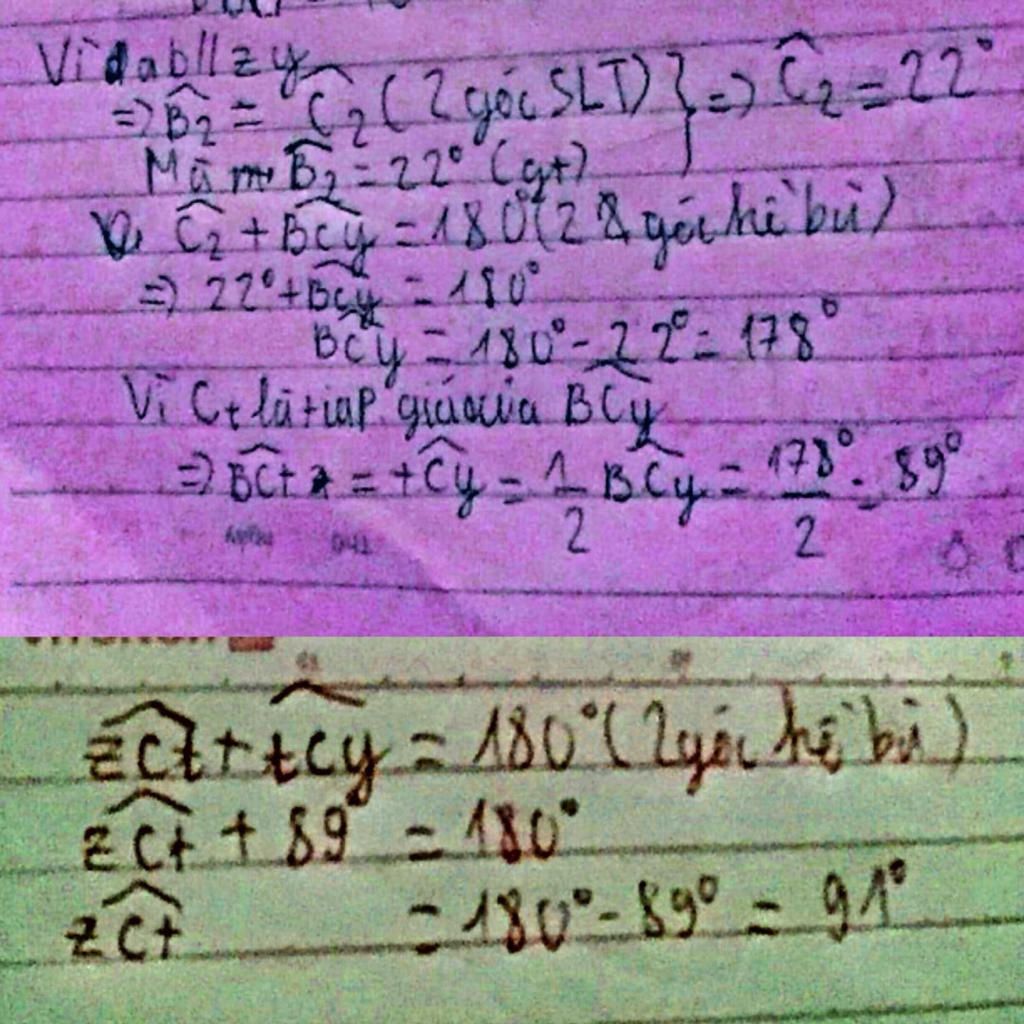 Vì ab // zy
=> B̂₂ = Ĉ₂ (2 góc SLT) } => Ĉ₂ = 22°
Mà B̂₂ = 22° (gt)
Ĉ₂ + BĈy = 180° (2 góc kề bù)
=> 22° + BĈy = 180°
BĈy = 180° - 22° = 178°
Vì Ct là tia p. giác của BĈy
=> BĈt = tĈy = 1/2 BĈy = 178°/2 = 89°
zĈt + tĈy = 180° (2 góc kề bù)
zĈt + 89° = 180°
zĈt = 180° - 89° = 91°